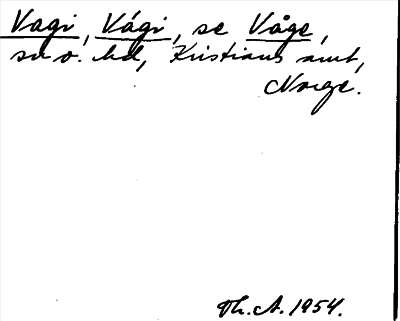 Vagi, Vági, se Våge,
sn o. hd, Kristians amt,
Norge.
Th. A. 1954.